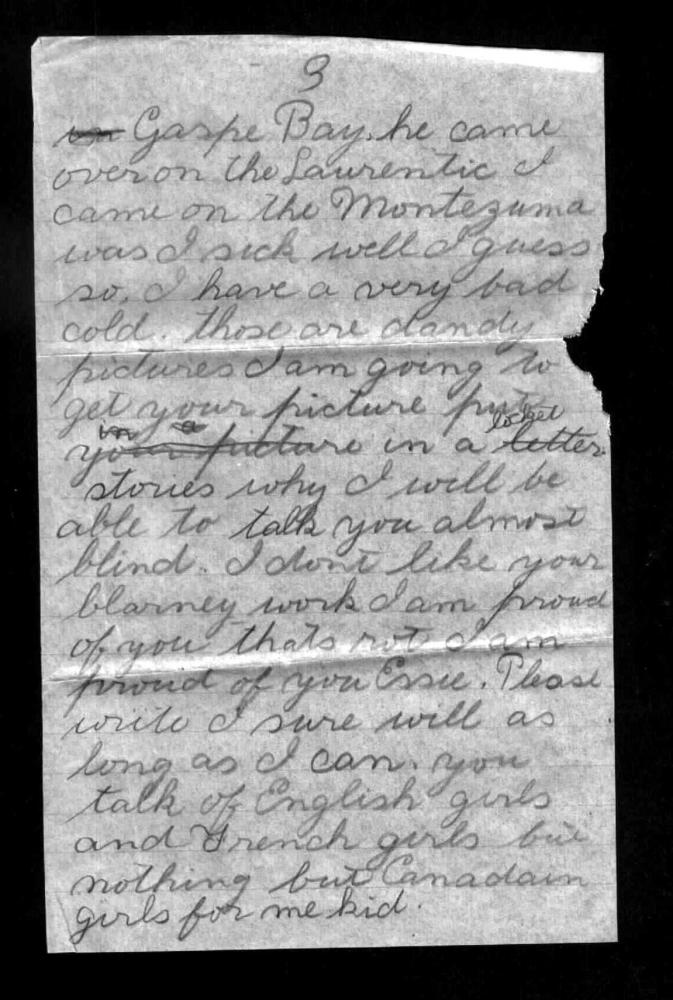 3
in Gaspe Bay. he came
over on the Laurentic I
came on the Montezuma
was I sick well I guess
so. I have a very bad
cold. those are dandy
pictures I am going to
get your picture put
in a locket
your picture in a letter
stories why I will be
able to talk you almost
blind. I dont like your
blarney work I am proud
of you thats rot I am
proud of you Essie. Please
write I sure will as
long as I can. you
talk of English girls
and French girls but
nothing but Canadain
girls for me kid.